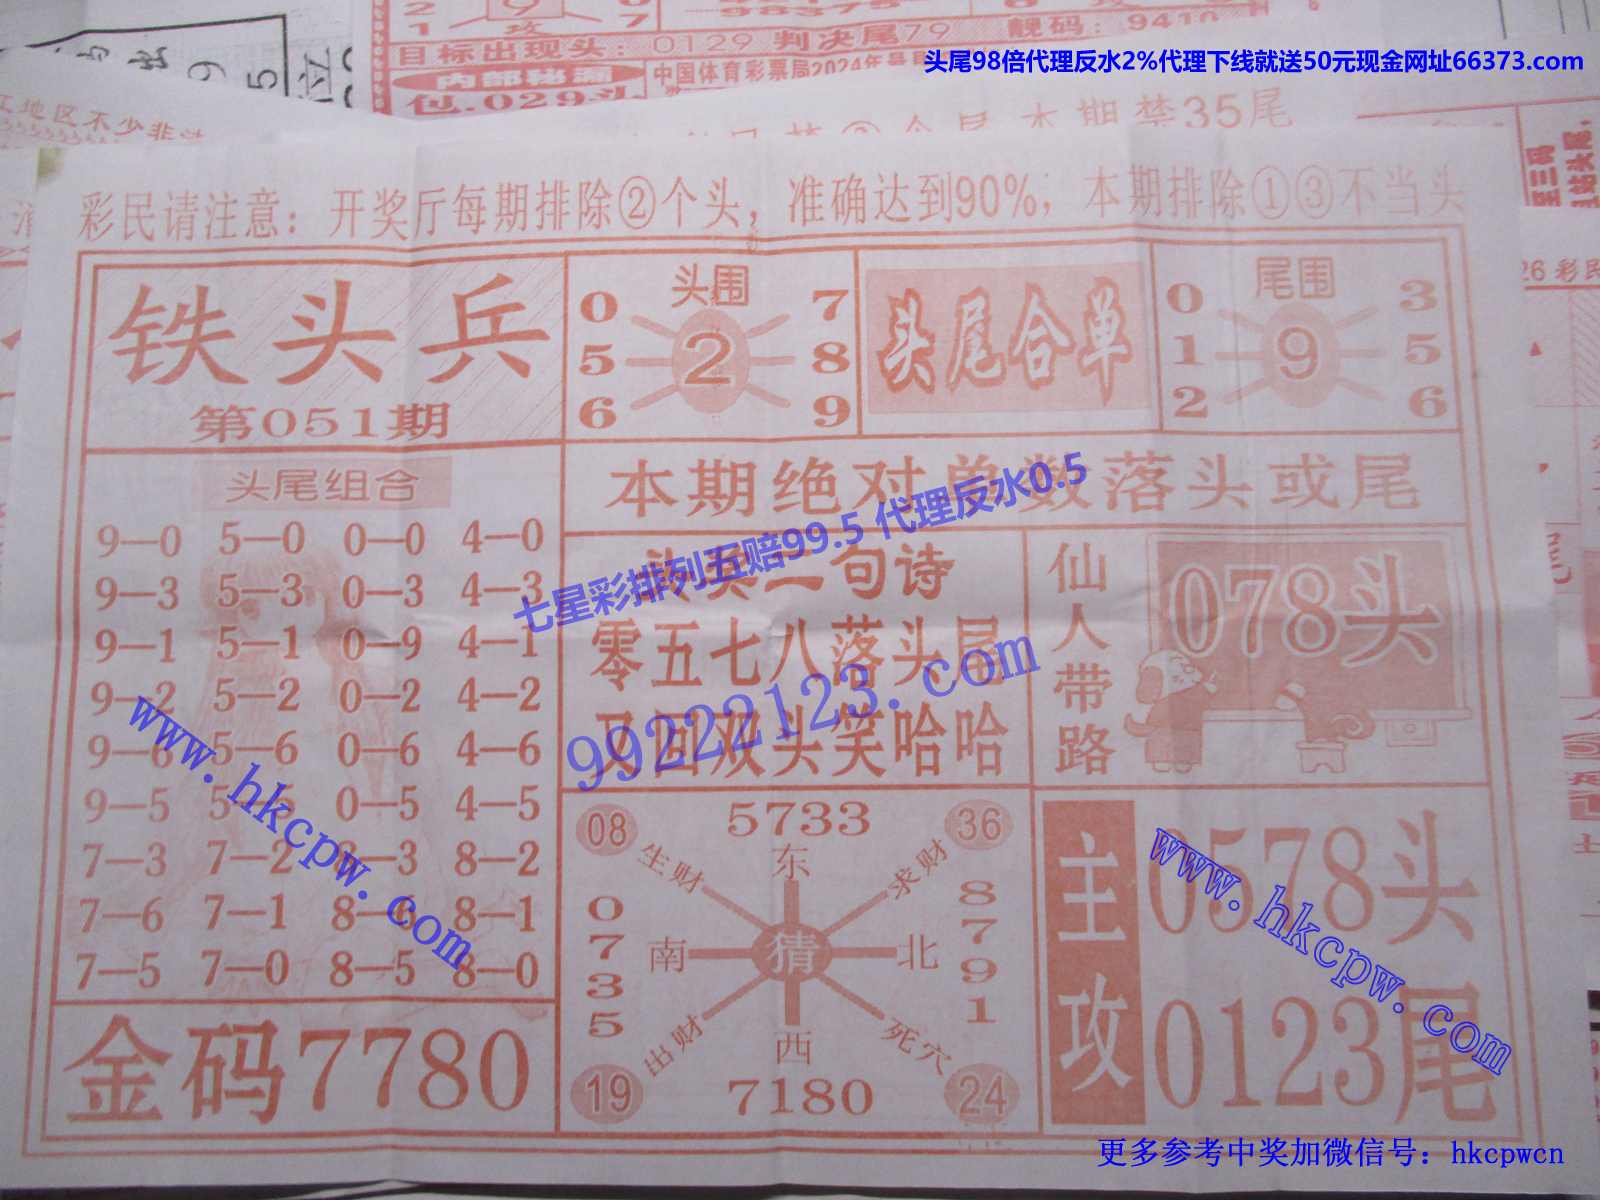 目标出现头：0129 判决尾79 靓码：9410
内部出源
中国体育彩票局2024年
包.029头
头尾98倍代理反水2%代理下线就送50元现金网址66373.com
江地区不少非法
本期禁35尾
26彩民
彩民请注意：开奖厅每期排除②个头，准确达到90%，本期排除①③不当头
铁头兵
第051期
头围
0 7
5 2 8
6 9
头尾合单
尾围
0 3
1 9 5
2 6
头尾组合
9—0 5—0 0—0 4—0
9—3 5—3 0—3 4—3
9—1 5—1 0—9 4—1
9—2 5—2 0—2 4—2
9—6 5—6 0—6 4—6
9—5 0—5 4—5
7—3 7—2 8—3 8—2
7—6 7—1 8—6 8—1
7—5 7—0 8—5 8—0
金码7780
本期绝对单数落头或尾
七星彩排列五赔99.5 代理反水0.5
头奖二句诗
零五七八落头尾
又回双头笑哈哈
99222123.com
仙人带路
078头
08 5733 36
生财 东 求财
0735 南 猜 北 8791
出财 西 死穴
19 7180 24
主攻
0578头
0123尾
www.hkcpw.com
www.hkcpw.com
更多参考中奖加微信号：hkcpwcn